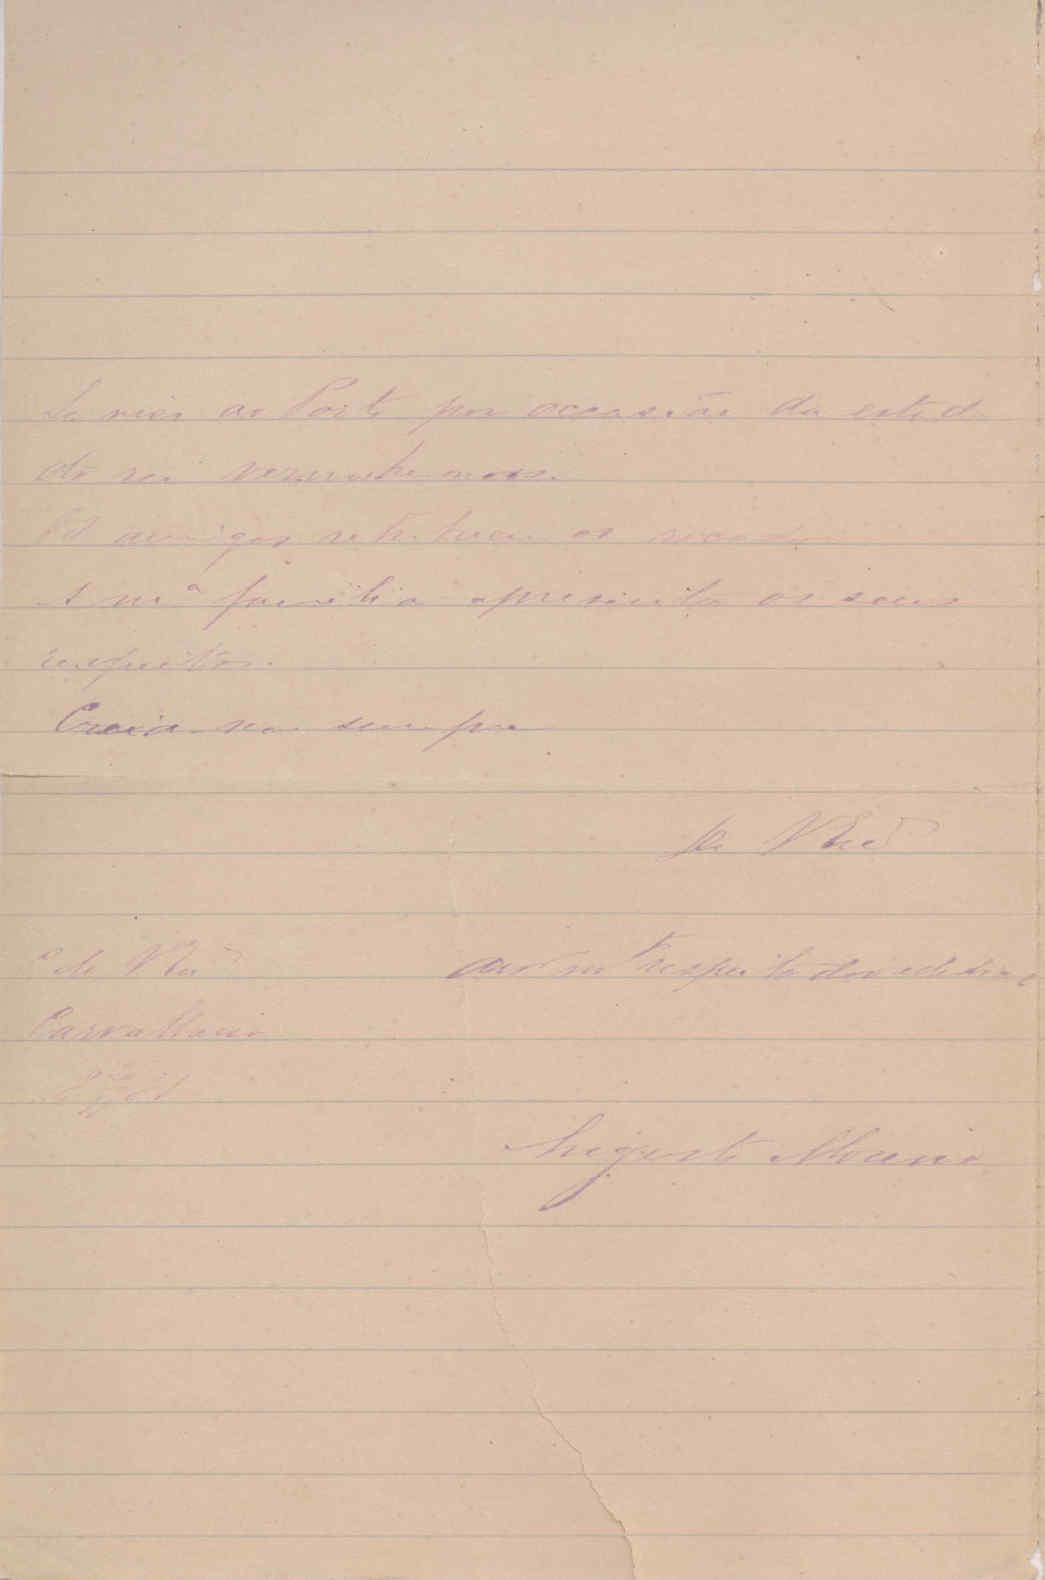 Se vier ao Porto por occasião da estada
do rei ver-nos-hemos.
Os amigos retribuem os recados
A mª familia apresenta os seus
respeitos.
Creia-me sempre
De V Exª
Cª de V Exª
amº mtº respeitador e
Carvalhaes
Augusto Moreno